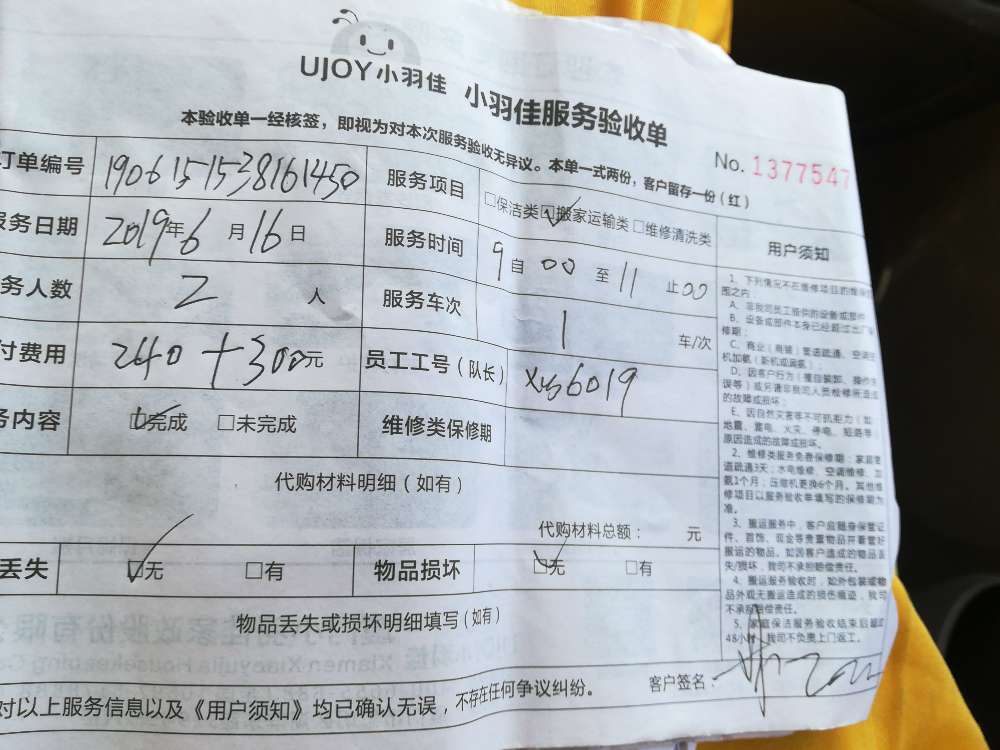 UJOY小羽佳 小羽佳服务验收单
本验收单一经核签，即视为对本次服务验收无异议。本单一式两份，客户留存一份（红）
No. 1377547
订单编号 1906151538161450 服务项目 □保洁类 ☑搬家运输类 □维修清洗类
服务日期 2019年6月16日 服务时间 9自00至11止00
务人数 2 人 服务车次 1 车/次
付费用 240+300元 员工工号（队长） 6019
务内容 ☑完成 □未完成 维修类保修期
代购材料明细（如有）
代购材料总额： 元
丢失 ☑无 □有 物品损坏 ☑无 □有
物品丢失或损坏明细填写（如有）
对以上服务信息以及《用户须知》均已确认无误，不存在任何争议纠纷。
客户签名：
用户须知
1、下列情况不在维修项目的维保
围之内：
A、非我司员工维修的设备或部件
B、设备或部件本身已经超过出厂
修期；
C、商业（商铺）管道疏通、空调
机加氨（新机或漏氨）；
D、因客户行为（擅自装卸、操作失
误等）或另请非我司人员检修所造成
的故障或损坏；
E、因自然灾害等不可抗能力（如
地震、雷电、火灾、停电、短路等）
原因造成的故障或损坏。
2、维修类服务免费保修期：家庭管
道疏通3天；水电维修、空调维修、加
氨1个月；压缩机更换6个月。其他维
修项目以服务验收单填写的保修期为
准。
3、搬运服务中，客户应随身保管证
件、首饰、现金等贵重物品并看管好
搬运的物品。如因客户造成的物品丢
失/损坏，我司不承担赔偿责任。
4、搬运服务验收时，如外包装或物
品外观无搬运造成的损伤痕迹，我司
不承担赔偿责任。
5、家庭保洁服务验收结束后超过
48小时，我司不负责上门返工。